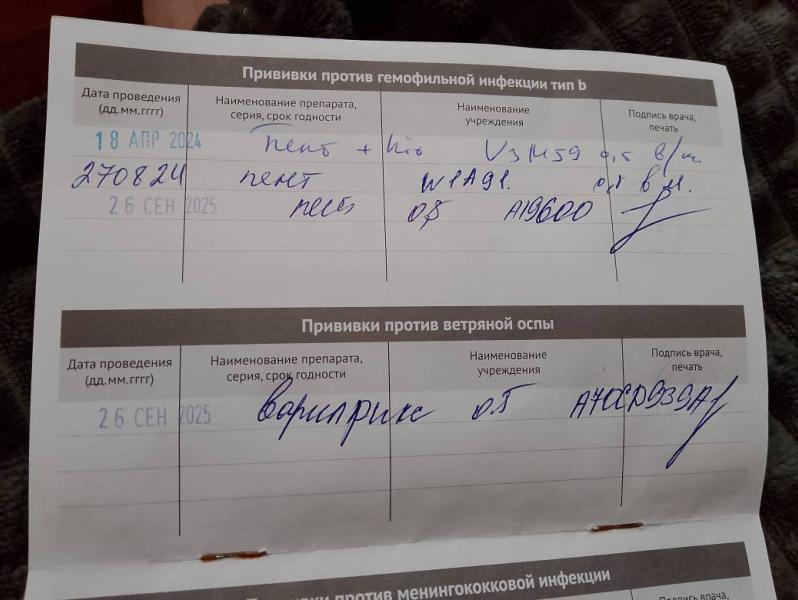 Прививки против гемофильной инфекции тип b
Дата проведения (дд.мм.гггг)
Наименование препарата, серия, срок годности
Наименование учреждения
Подпись врача, печать
18 АПР 2024 пент + hib V3M59 0,5 в/м
270824 пент W1A91. 0,5 в м.
26 СЕН 2025 пент 0,5 A19600
Прививки против ветряной оспы
Дата проведения (дд.мм.гггг)
Наименование препарата, серия, срок годности
Наименование учреждения
Подпись врача, печать
26 СЕН 2025 Варилрикс 0,5
Прививки против менингококковой инфекции
Подпись врача,